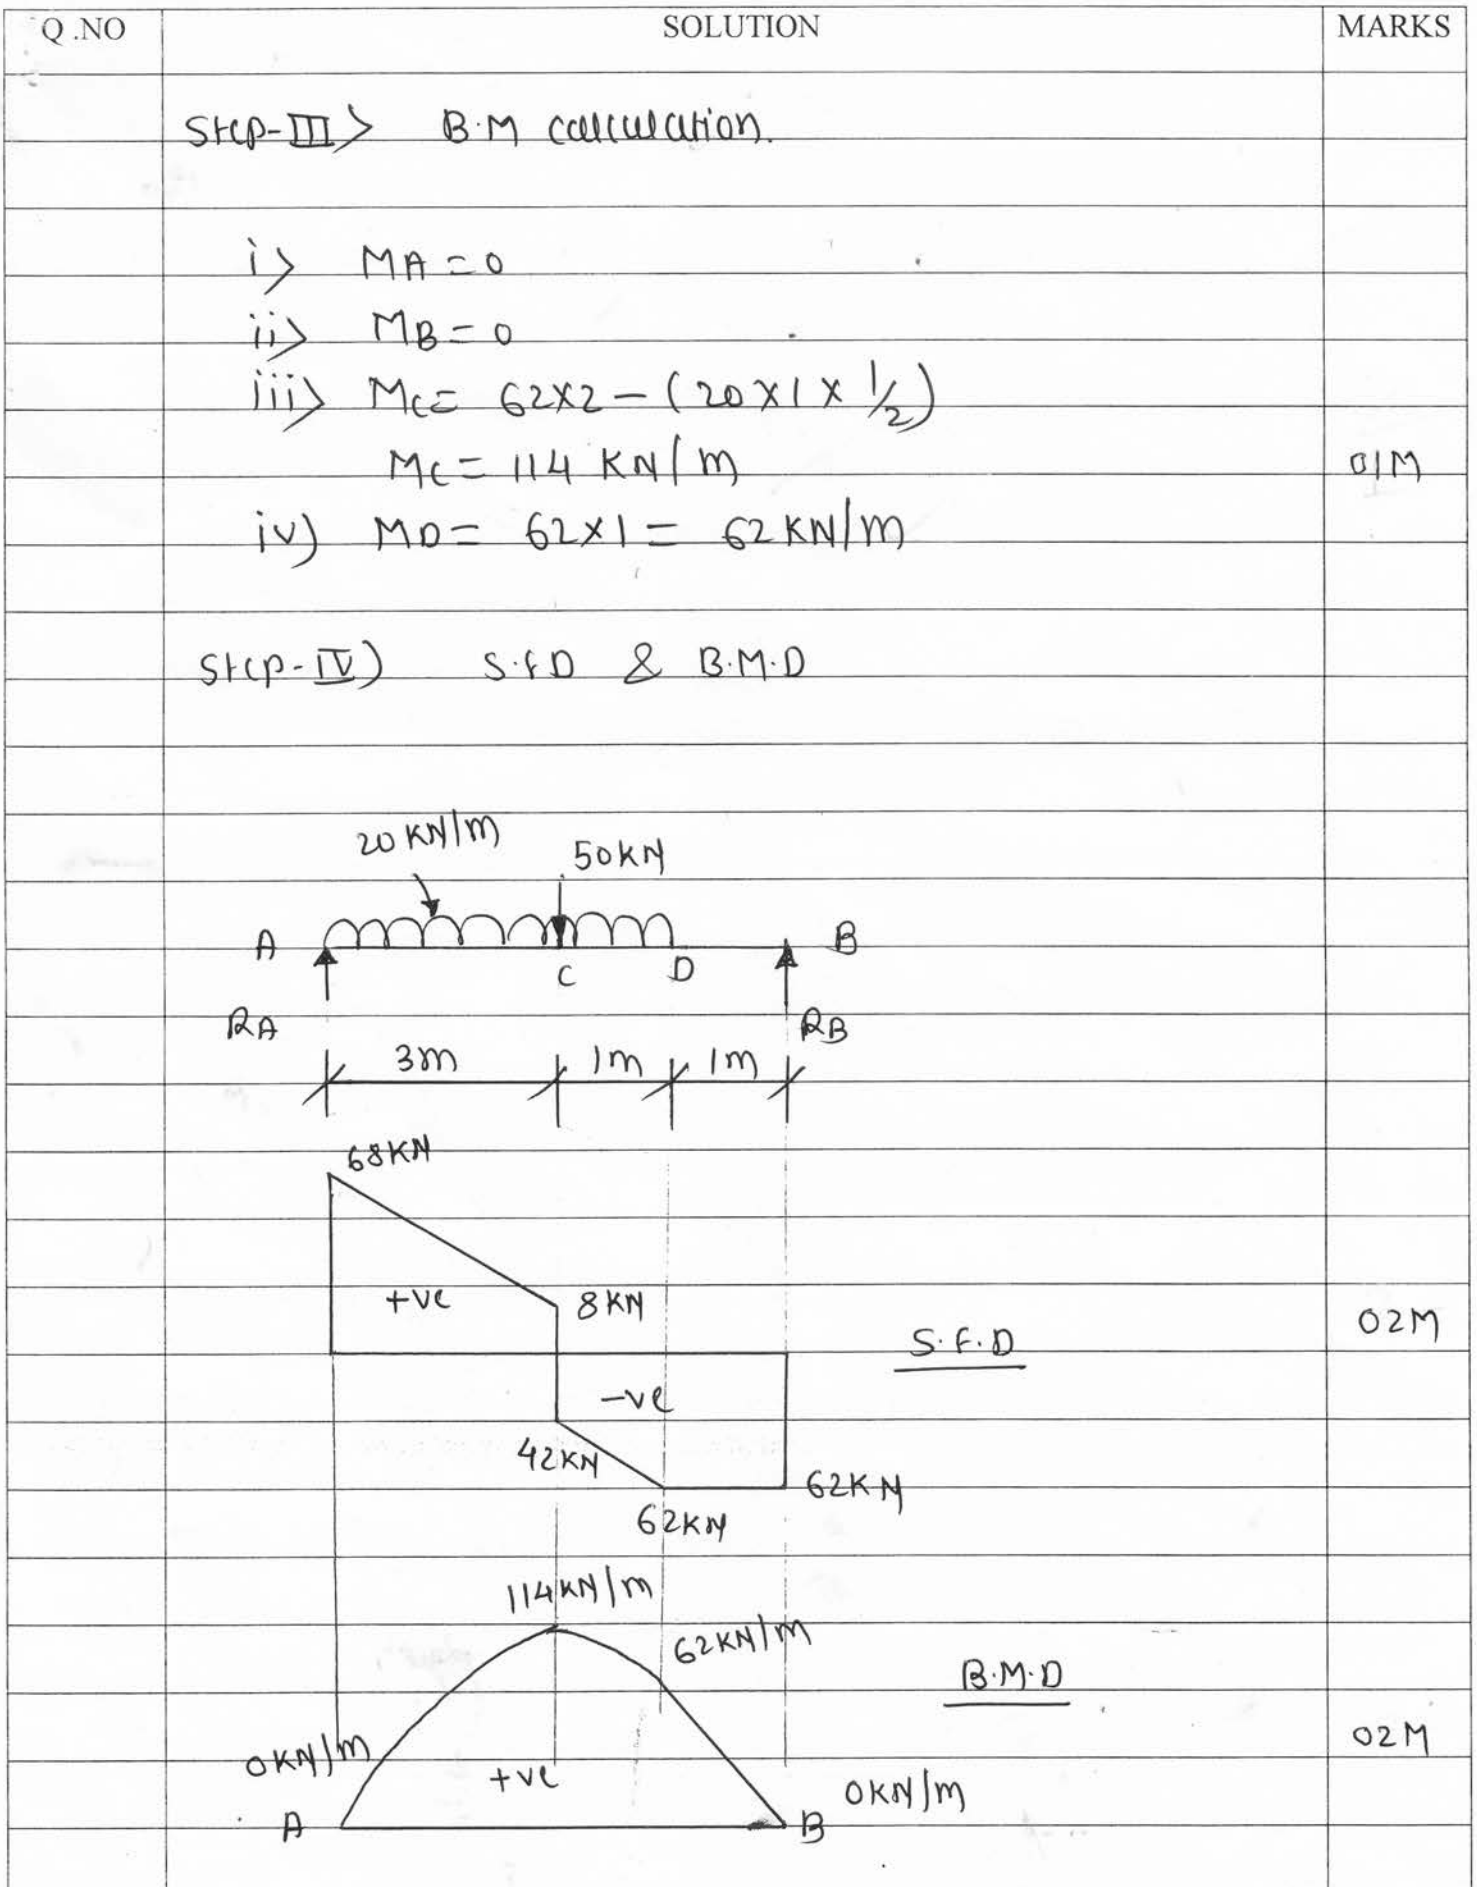 Q.NO SOLUTION MARKS
Step-III> B.M calculation.
i> MA = 0
ii> MB = 0
iii> MC = 62X2 - (20 X 1 X 1/2)
MC = 114 KN/m 01M
iv) MD = 62X1 = 62 KN/m
Step-IV) S.f.D & B.M.D
20 KN/m
50KN
A B
C D
RA RB
3m 1m 1m
68KN
+ve 8KN 02M
S.F.D
-ve
42KN 62KN
62KN
114KN/m
62KN/m
B.M.D
0KN/m 02M
+ve 0KN/m
A B